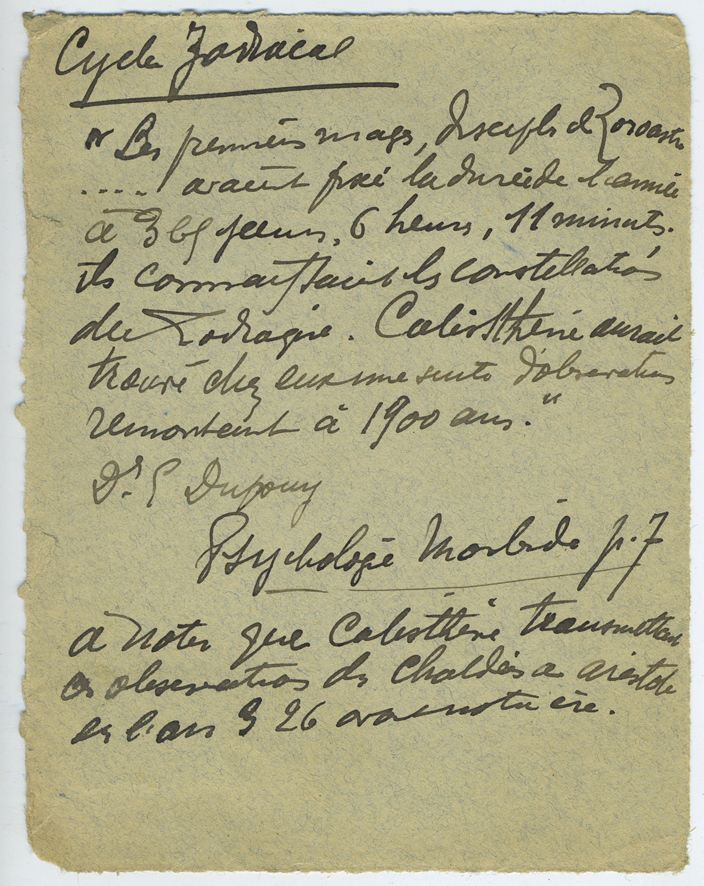 Cycle Zodiacal
"Les premiers mages, disciples de Zoroastre
..... avaient fixé la durée de l'année
à 365 jours, 6 heures, 11 minutes.
ils connaissaient les constellations
du Zodiaque. Calisthène aurait
trouvé chez eux une suite d'observations
remontant à 1900 ans."
Dr E Dupouy
Psychologie Morbide p. 7
à noter que Calisthène transmettait
ces observations des Chaldéens à Aristote
en l'an 326 avant notre ère.